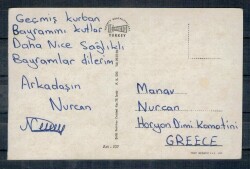 Geçmiş kurban
Bayramını kutlar
Daha Nice Sağlıklı
Bayramlar dilerim
Arkadaşın
Nurcan
TURKEY
Manav
Nurcan
Horyon Dimi Komotini
GREECE